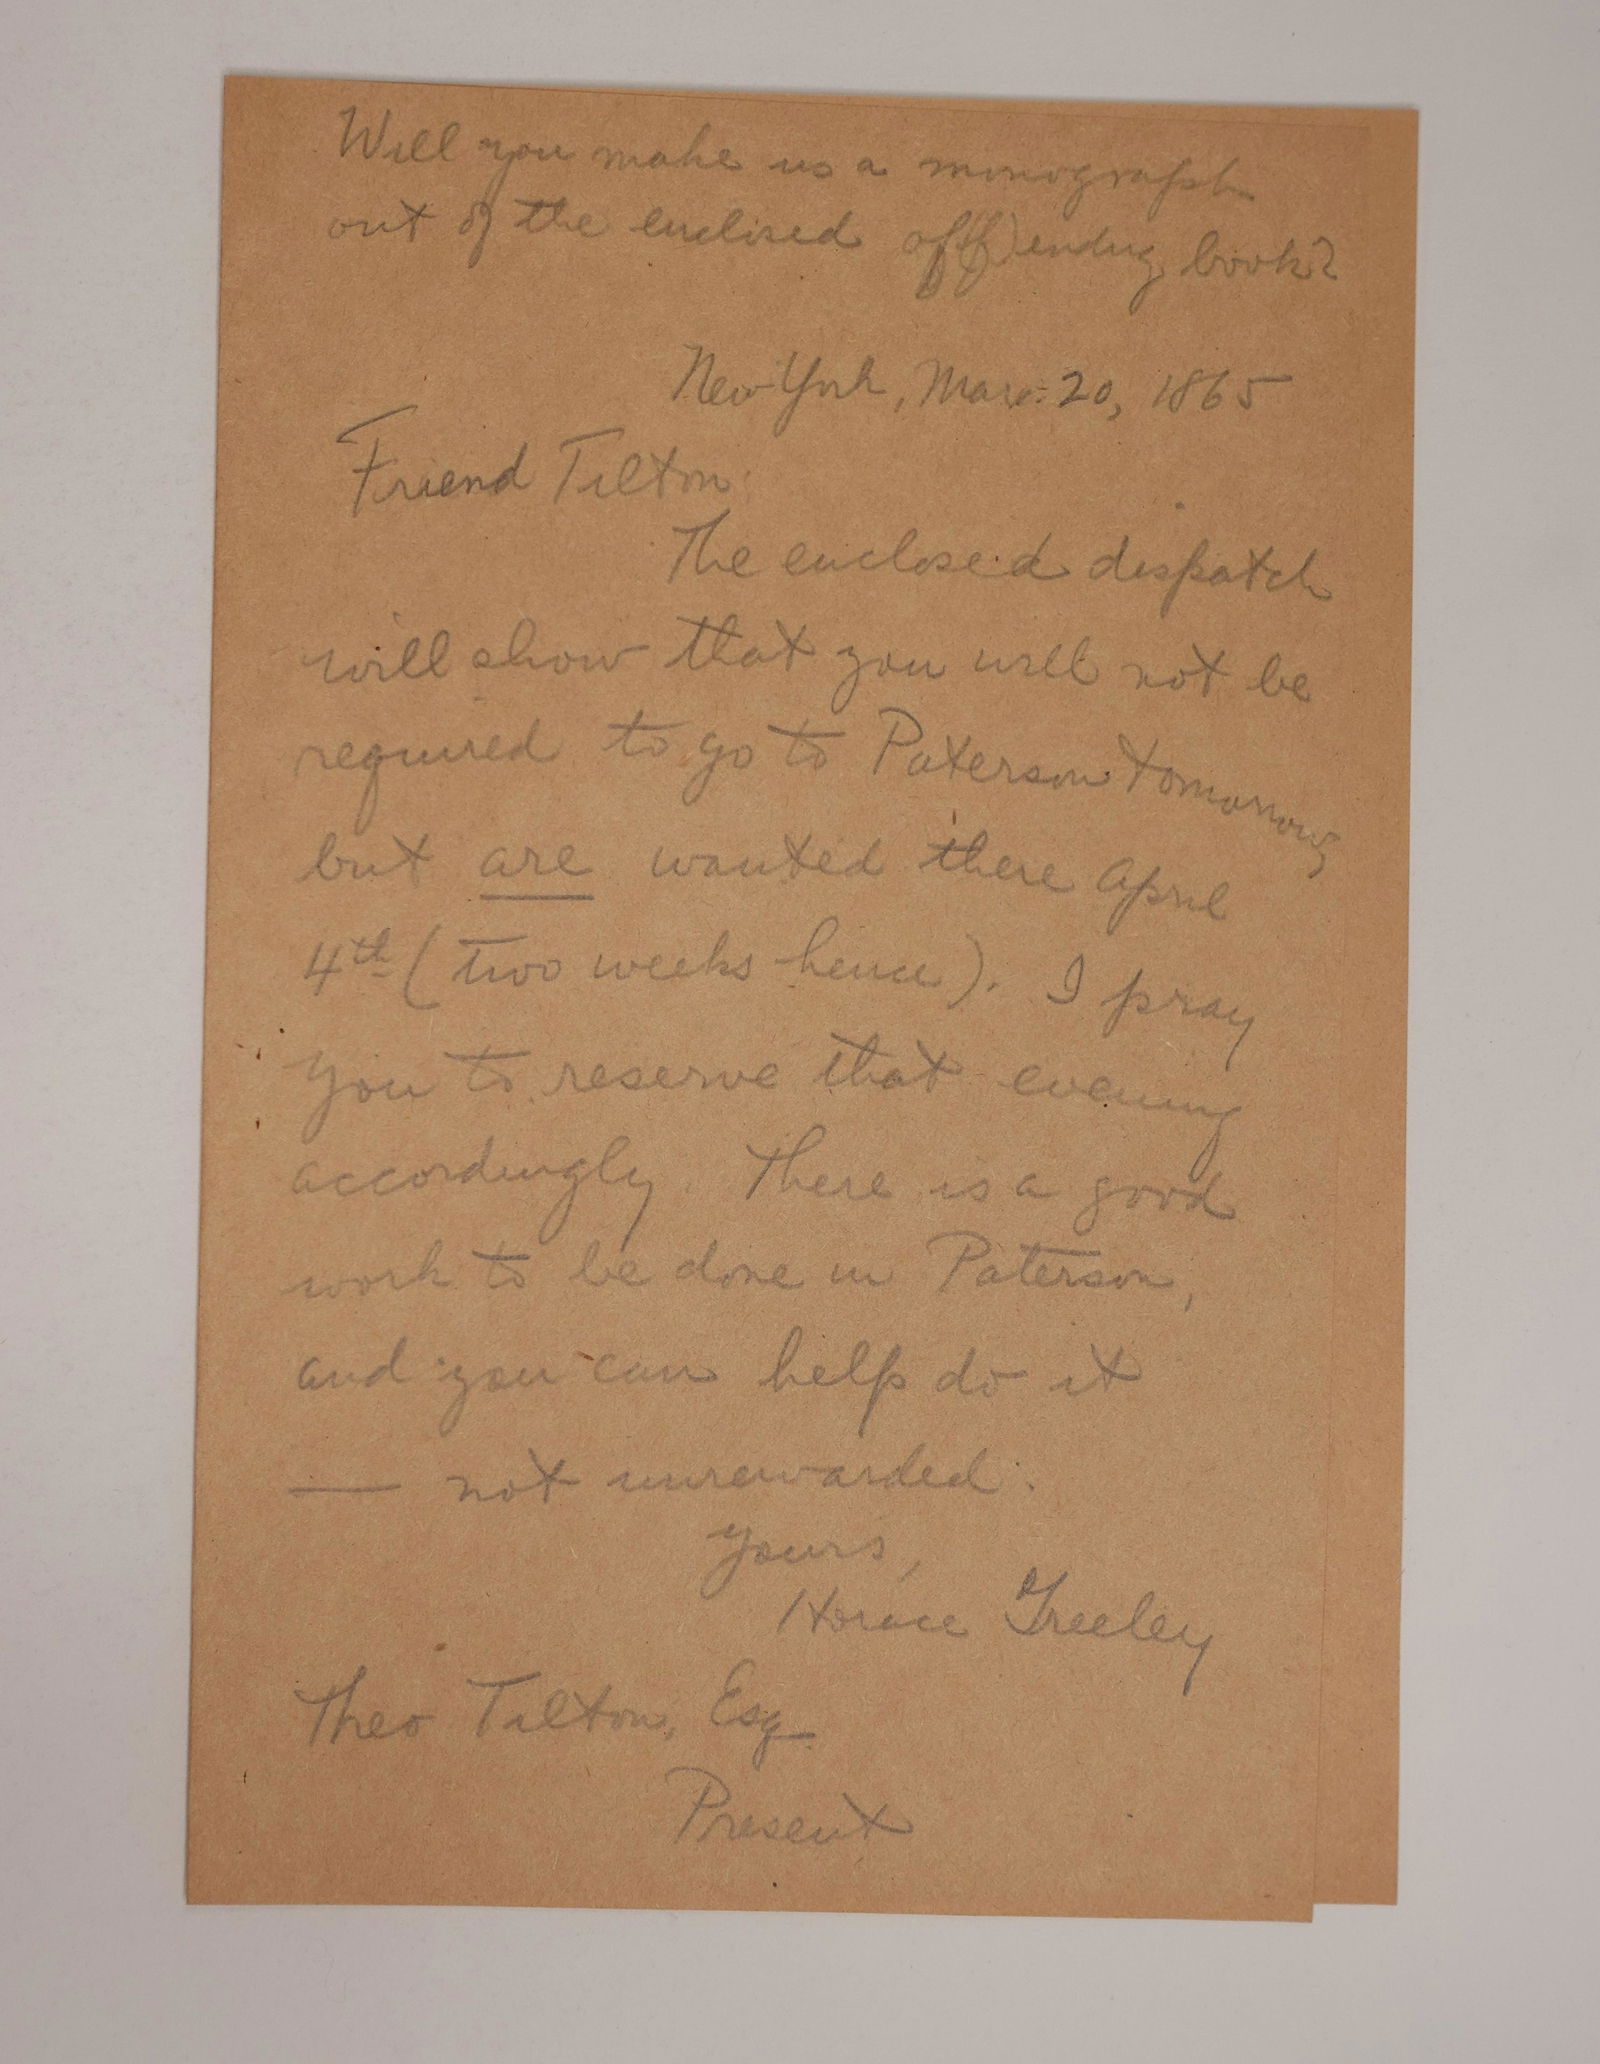 Will you make us a monograph
out of the enclosed off(f)ending book?
New York, Mar. 20, 1865
Friend Tilton:
The enclosed dispatch
will show that you will not be
required to go to Paterson tomorrow,
but are wanted there April
4th (two weeks hence). I pray
you to reserve that evening
accordingly. There is a good
work to be done in Paterson,
and you can help do it
— not unrewarded.
Yours,
Horace Greeley
Theo Tilton, Esq.
Present